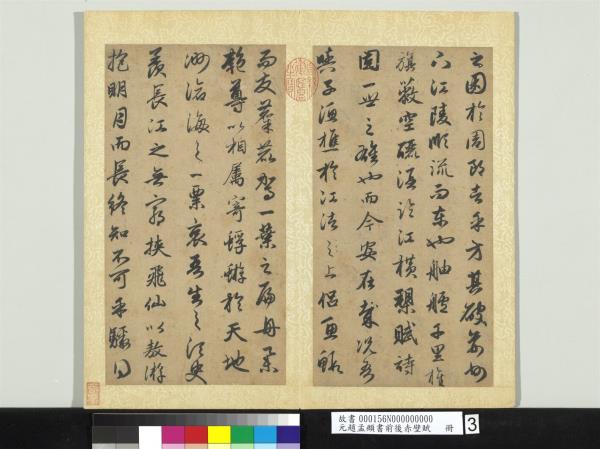 之困於周郎者乎方其破荊州
下江陵順流而東也舳艫千里旌
旗蔽空釃酒臨江橫槊賦詩
固一世之雄也而今安在哉況吾
與子漁樵於江渚之上侶魚蝦
而友麋鹿駕一葉之扁舟舉
匏尊以相屬寄蜉蝣於天地
渺滄海之一粟哀吾生之須臾
羨長江之無窮挾飛仙以遨遊
抱明月而長終知不可乎驟得
故書 000156N000000000
元趙孟頫書前後赤壁賦 冊
3